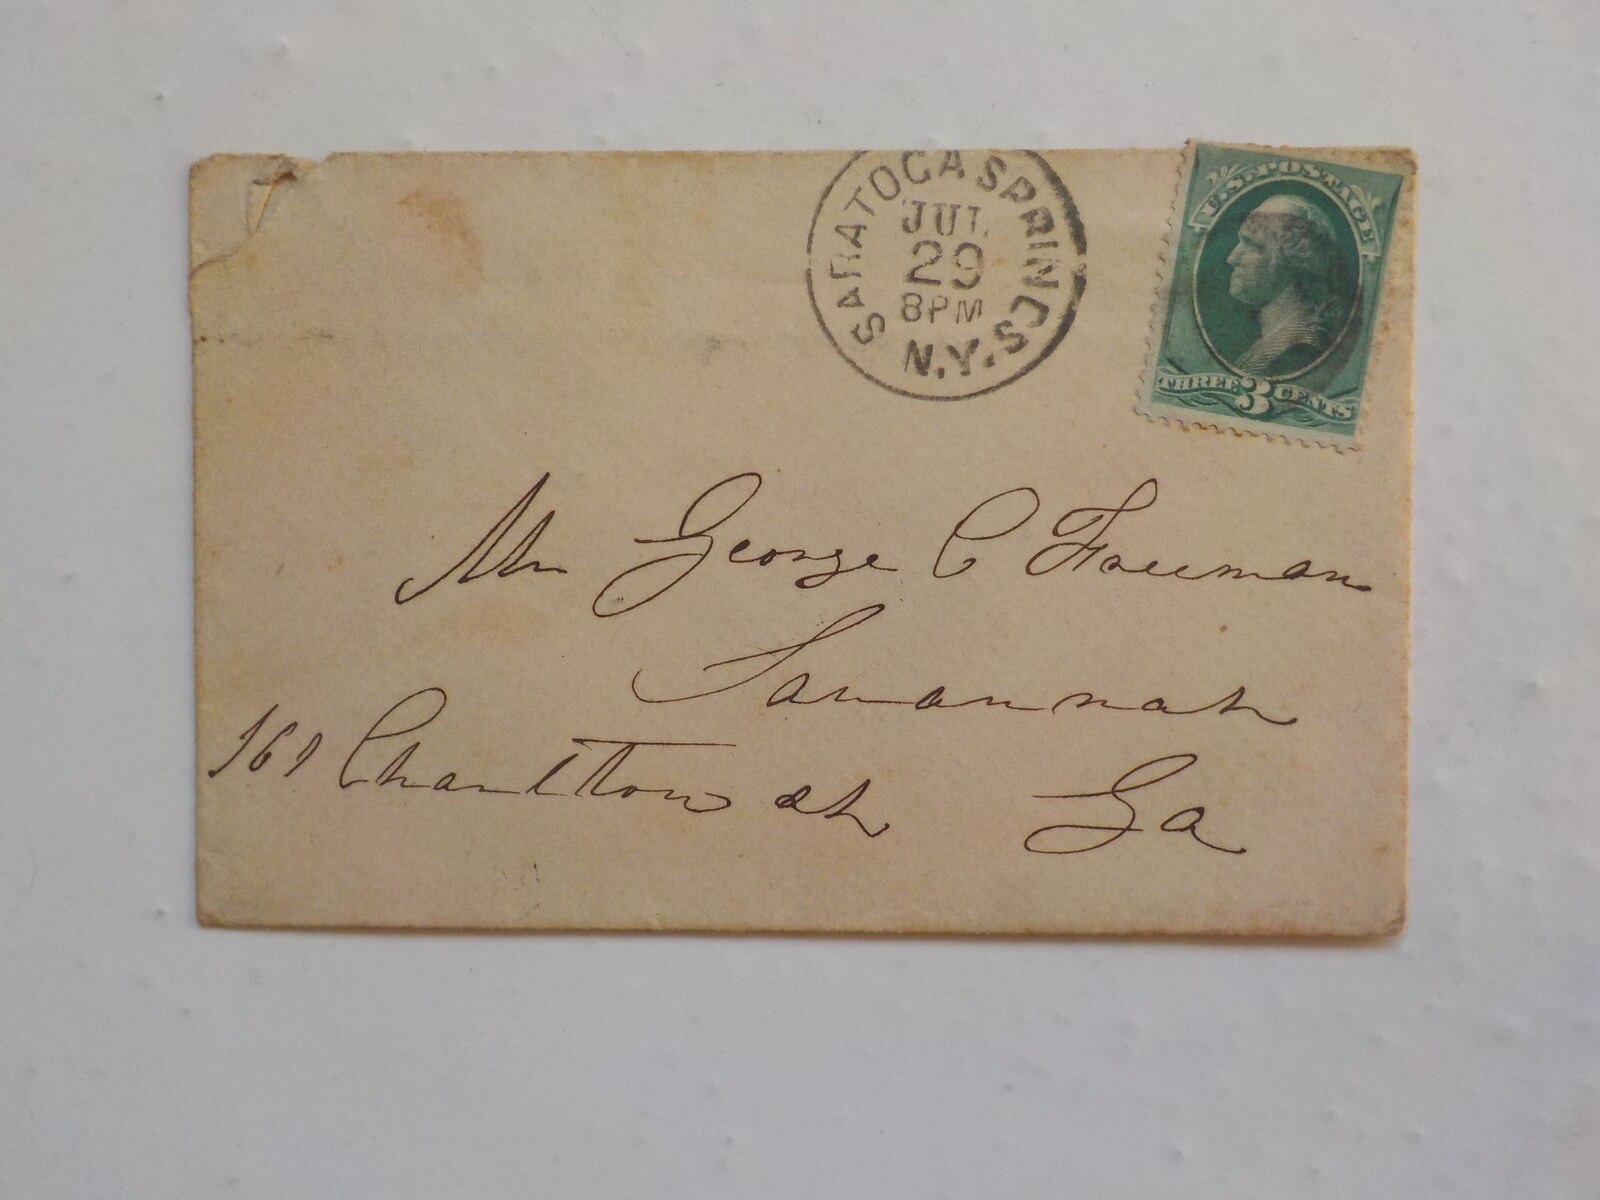 SARATOGA SPRINGS
JUL
29
8 PM
N.Y.
U.S. POSTAGE
THREE 3 CENTS
Mr George C Freeman
Savannah
Ga
161 Charlton st